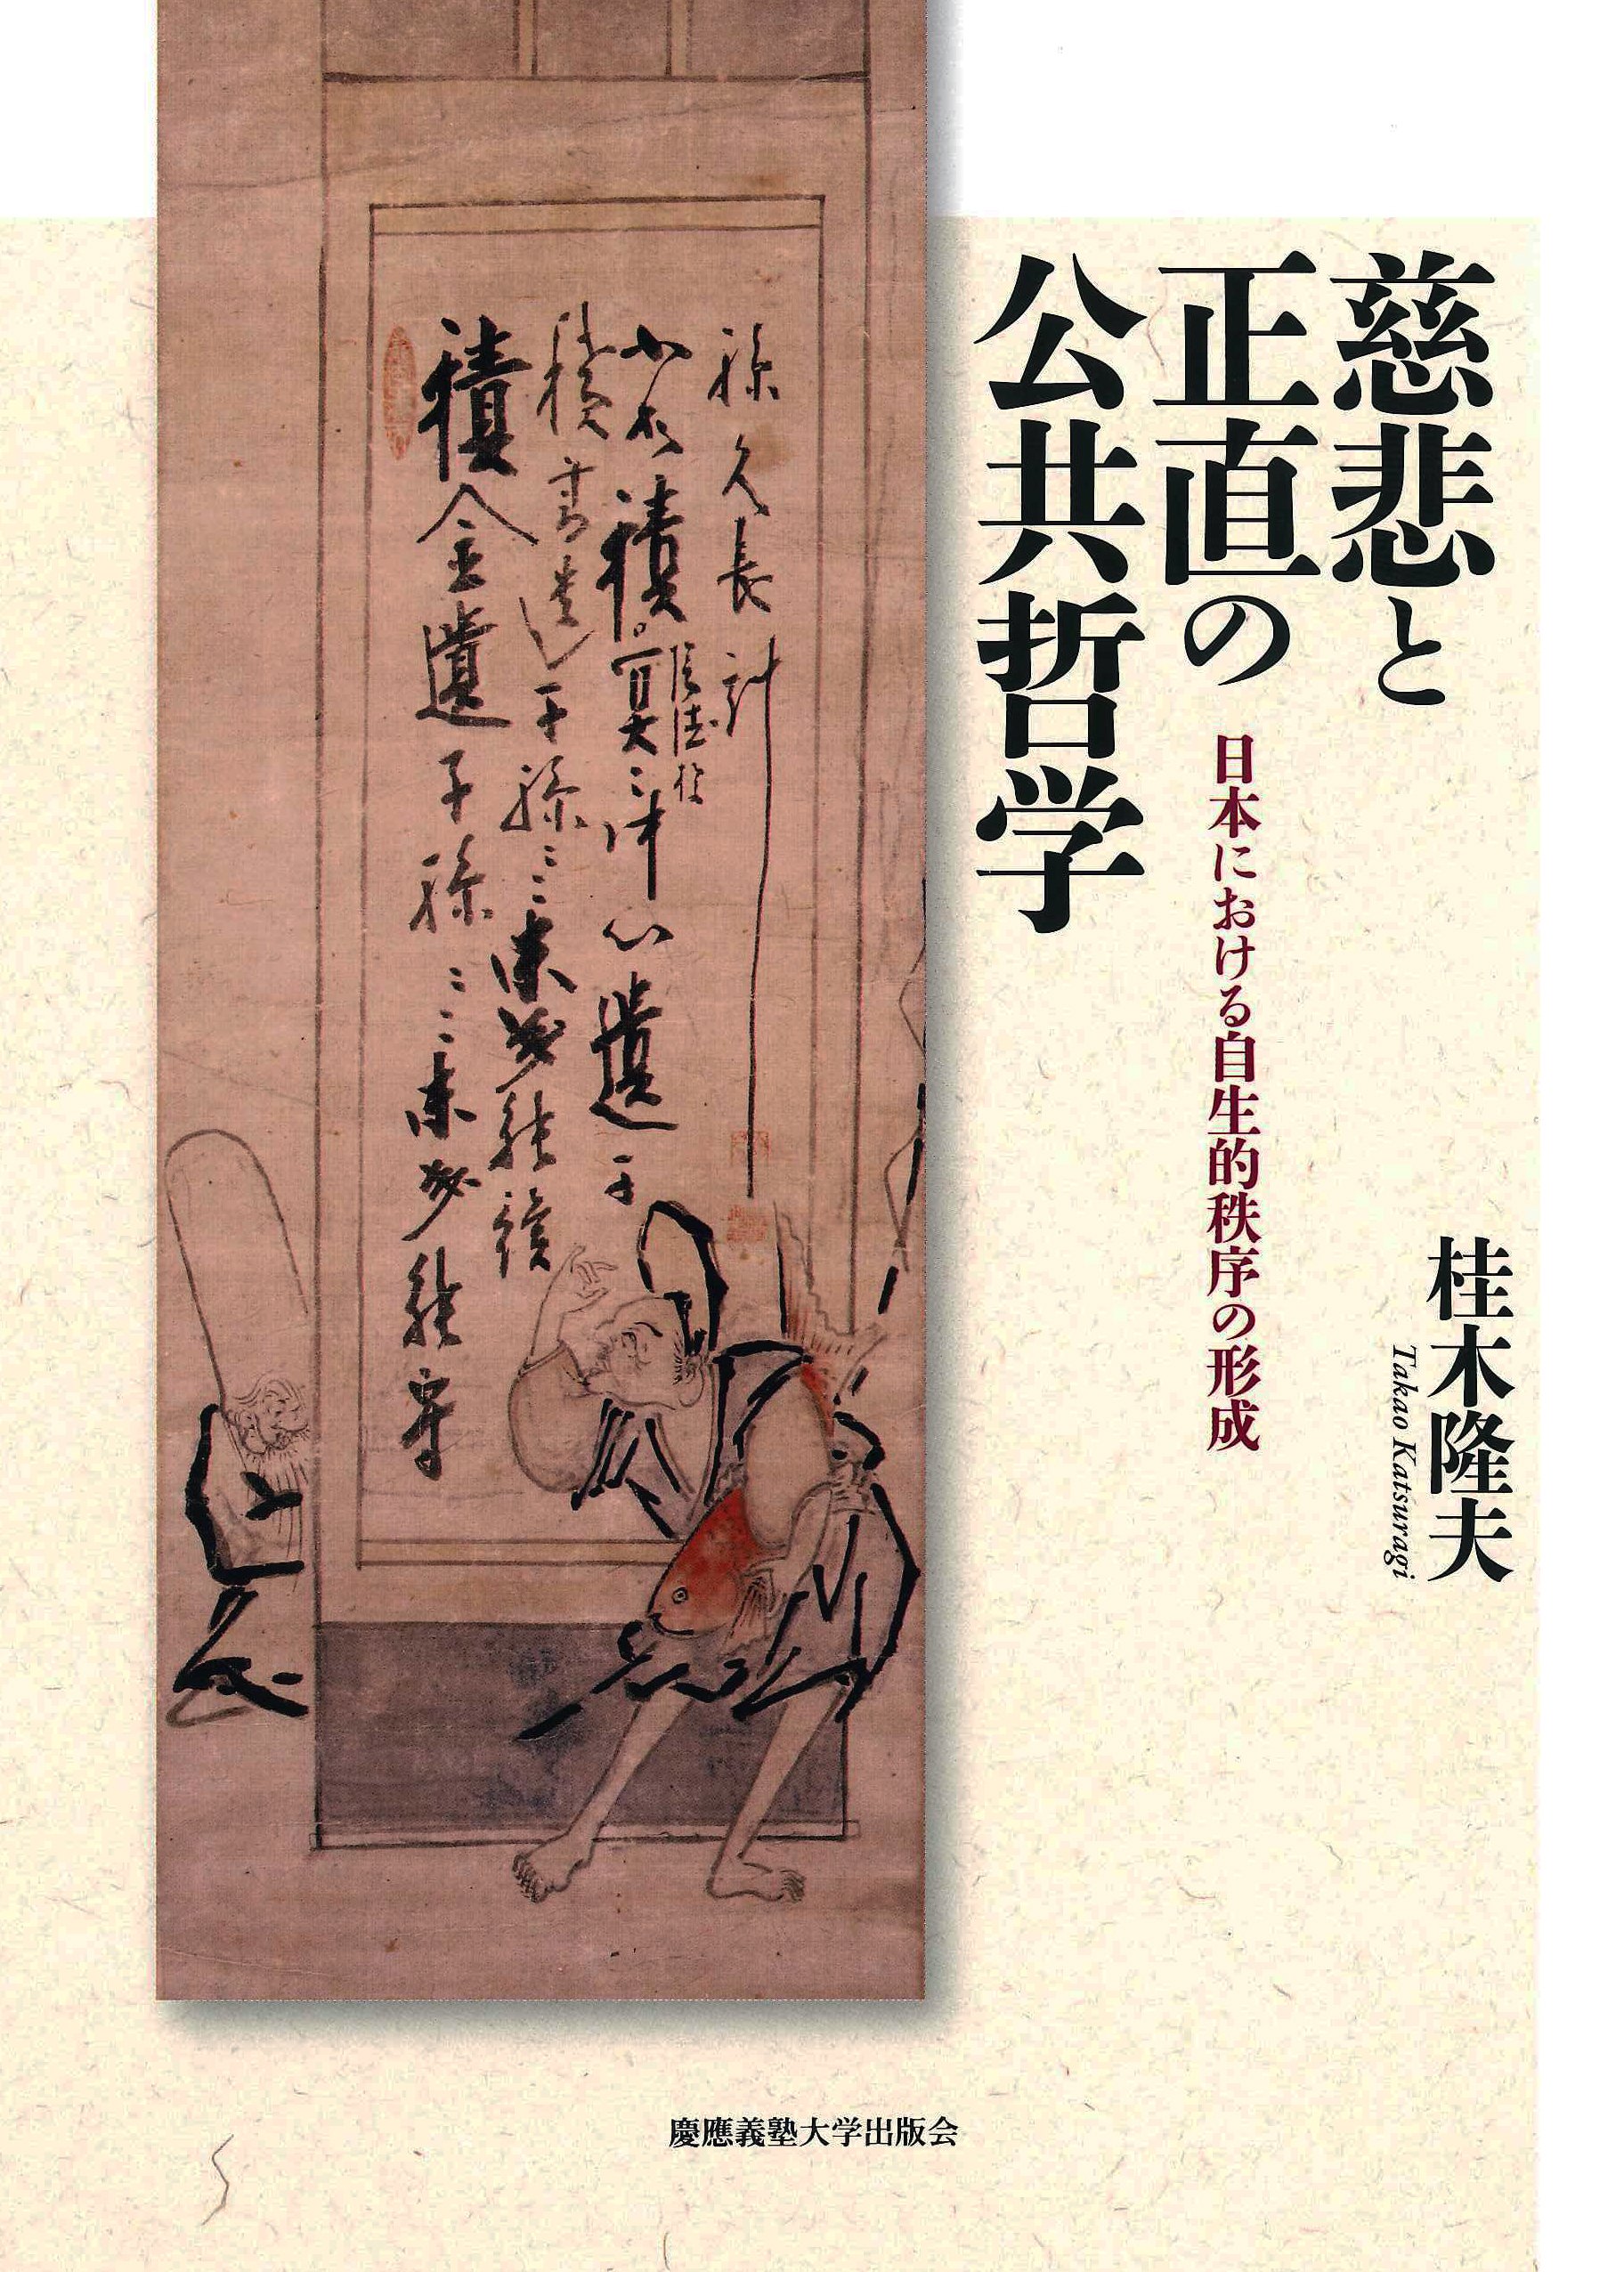 慈悲と
正直の
公共哲学
日本における自生的秩序の形成
桂木隆夫
Takao Katsuragi
積金遺子孫〻〻未必能守
積書遺子孫〻〻未必能讀
不如積陰徳於冥〻中以遺子
孫久長計
慶應義塾大学出版会